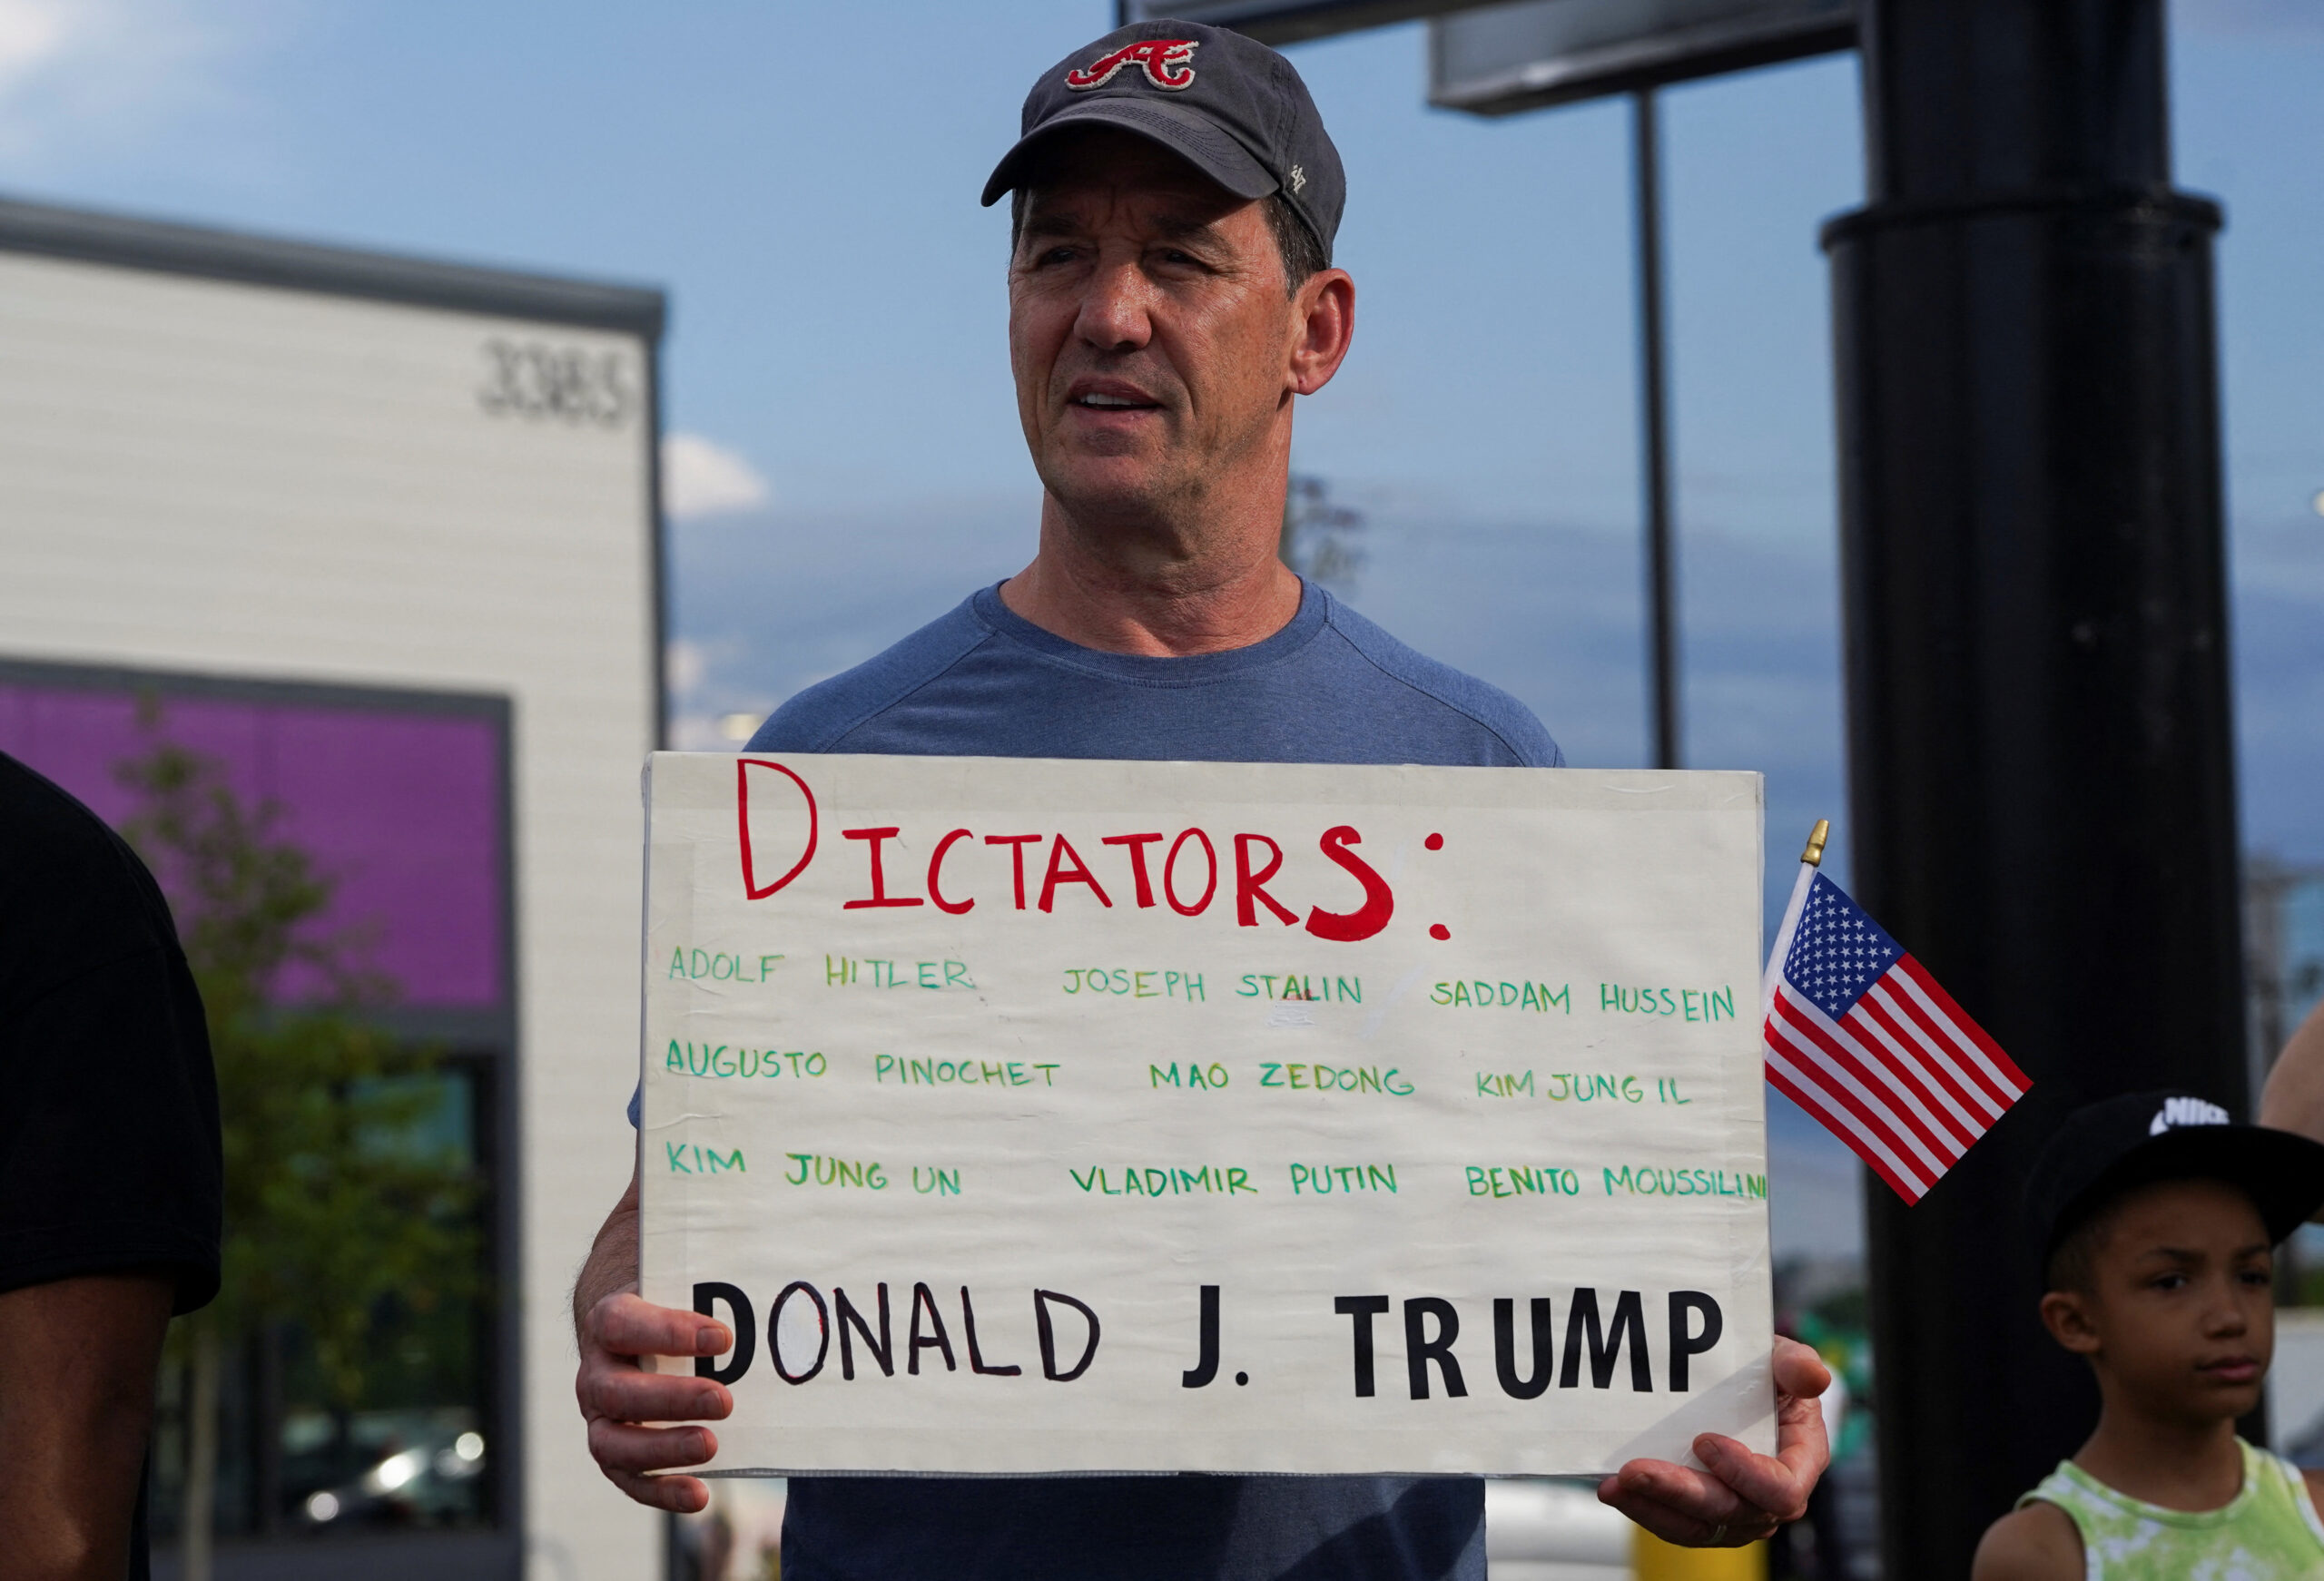 A
47
3385
DICTATORS:
ADOLF HITLER JOSEPH STALIN SADDAM HUSSEIN
AUGUSTO PINOCHET MAO ZEDONG KIM JUNG IL
KIM JUNG UN VLADIMIR PUTIN BENITO MOUSSILINI
DONALD J. TRUMP
NIKE